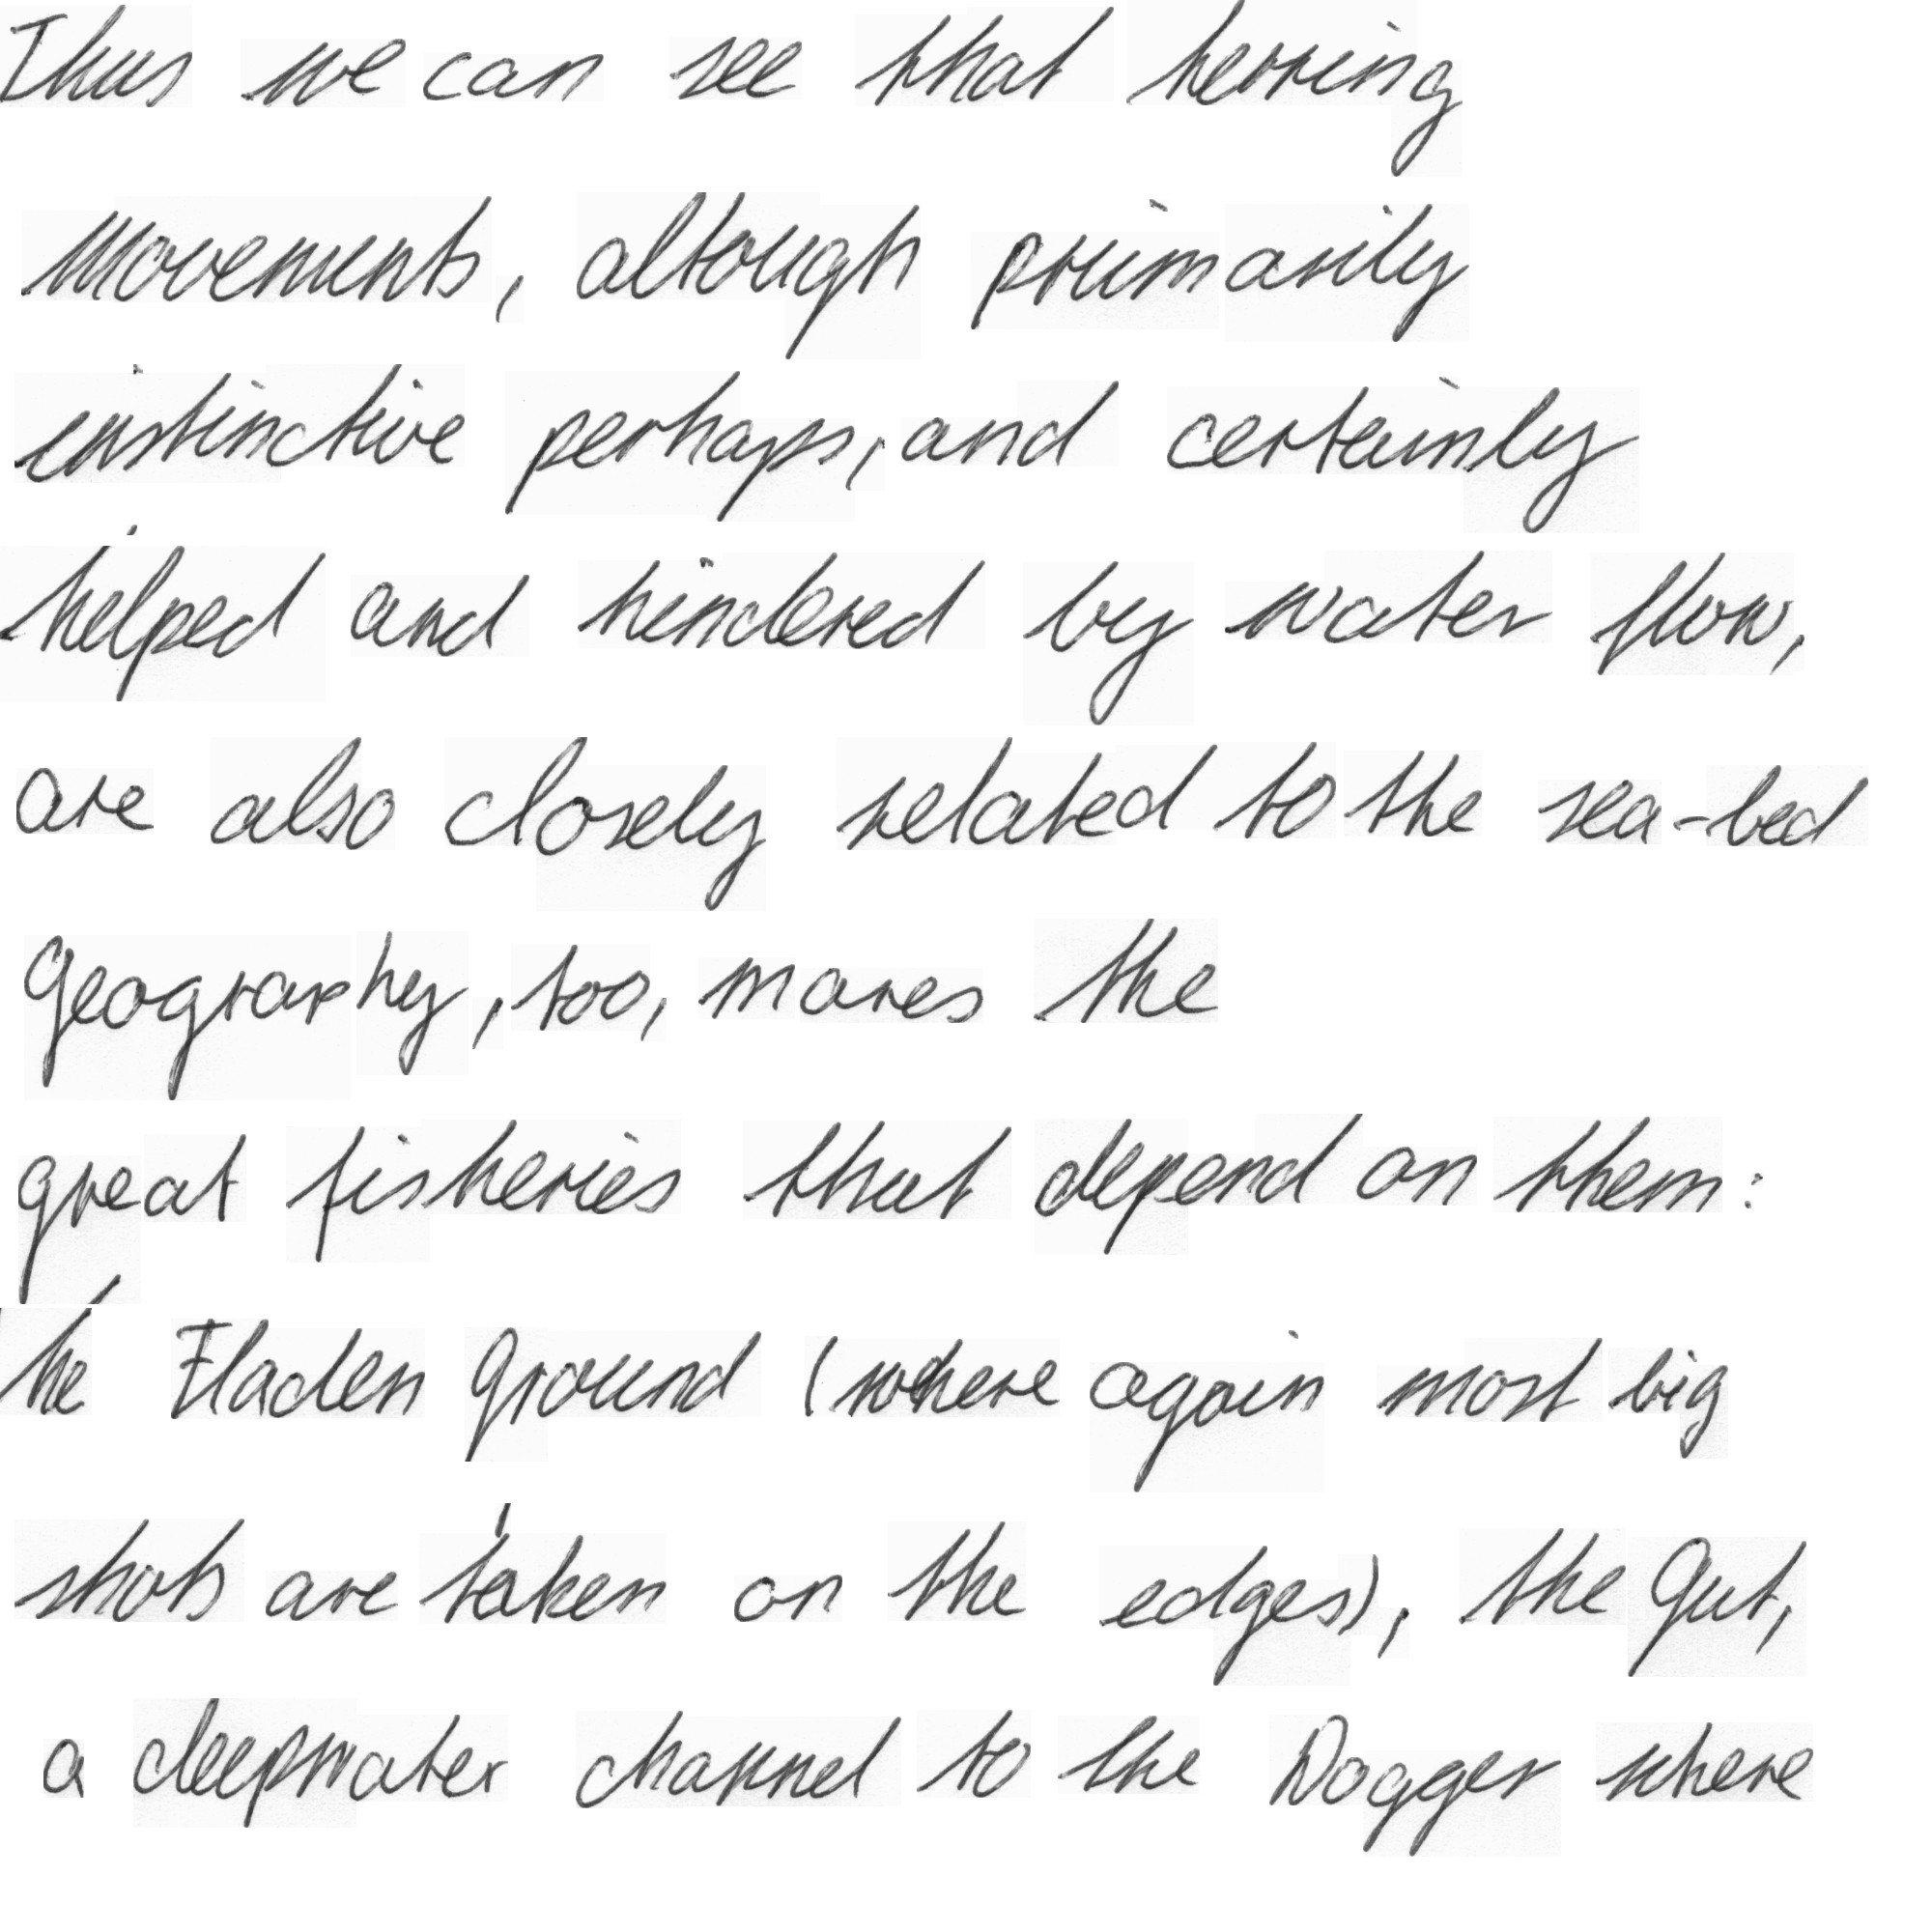 Thus we can see that herring
movements, altough primarily
instinctive perhaps, and certainly
helped and hindered by water flow,
are also closely related to the sea-bed
geography, too, mares the
great fisheries that depend on them:
he Fladen Ground (where again most big
shots are taken on the edges), the Gut,
a deepwater channel to the Dogger where